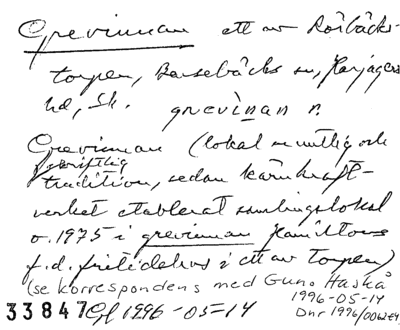 Grevinnan ett av Rörbäcks-
torpen, Barsebäcks sn, Harjagers
hd, Sk. grevìnan n.
Grevinnan (lokal muntlig och
skriftlig
tradition, sedan kärnkraft-
verket etablerat samlingslokal
o. 1975 i grevinnan Hamiltons
f.d. fritidshus i ett av torpen)
(se korrespondens med Guno Haskå
1996-05-14
33847 1996-05-14 Dnr 1996/0062E4